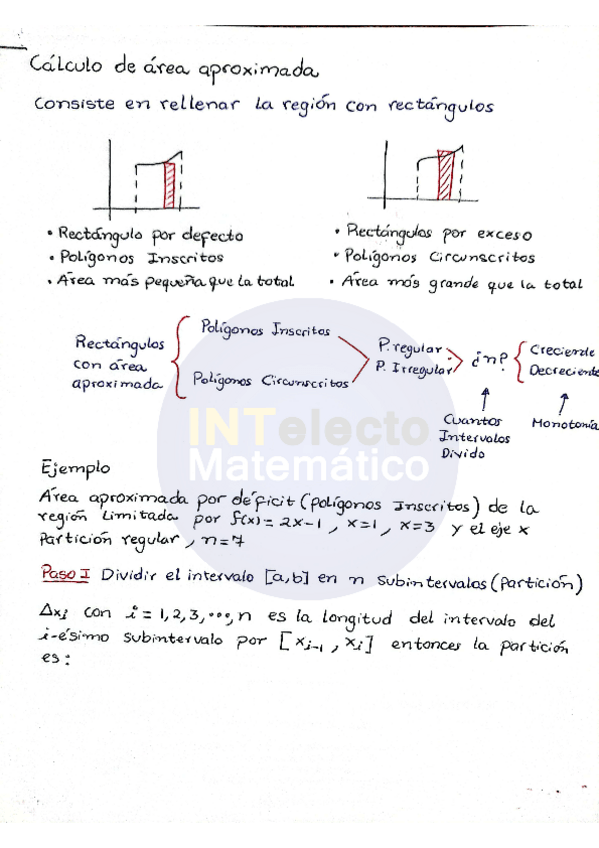 Cálculo de área aproximada
Consiste en rellenar la región con rectángulos
• Rectángulo por defecto
• Polígonos Inscritos
• Área más pequeña que la total
• Rectángulos por exceso
• Polígonos Circunscritos
• Área más grande que la total
Rectángulos
con área
aproximada
Polígonos Inscritos
Polígonos Circunscritos
P. regular
P. Irregular
¿n?
Creciende
Decreciente
Cuantos
Intervalos
Divido
Monotonía
INTelecto
Matemático
Ejemplo
Área aproximada por déficit (polígonos Inscritos) de la
región limitada por f(x) = 2x-1, x=1, x=3 y el eje x
Partición regular, n=7
Paso I Dividir el intervalo [a,b] en n subintervalos (partición)
Δxi con i = 1,2,3,...,n es la longitud del intervalo del
i-ésimo subintervalo por [xi-1, xi] entonces la partición
es: